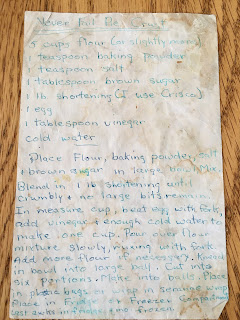 Never Fail Pie Crust
5 cups flour (or slightly more)
1 teaspoon baking powder
1 teaspoon salt
1 tablespoon brown sugar
1 lb shortening (I use Crisco)
1 egg
1 tablespoon vinegar
cold water
Place Flour, baking powder, salt
& brown sugar in large bowl. Mix.
Blend in 1 lb shortening until
crumbly & no large bits remain.
In measure cup, beat egg with fork,
add vinegar & enough cold water to
make one cup. Pour over flour
mixture slowly, mixing with fork.
Add more flour if necessary. Knead
in bowl into large ball. Cut into
six portions. Make into balls. Place
in plastic bags or wrap in saran wrap.
Place in Fridge or Freezer
Lost in frozen